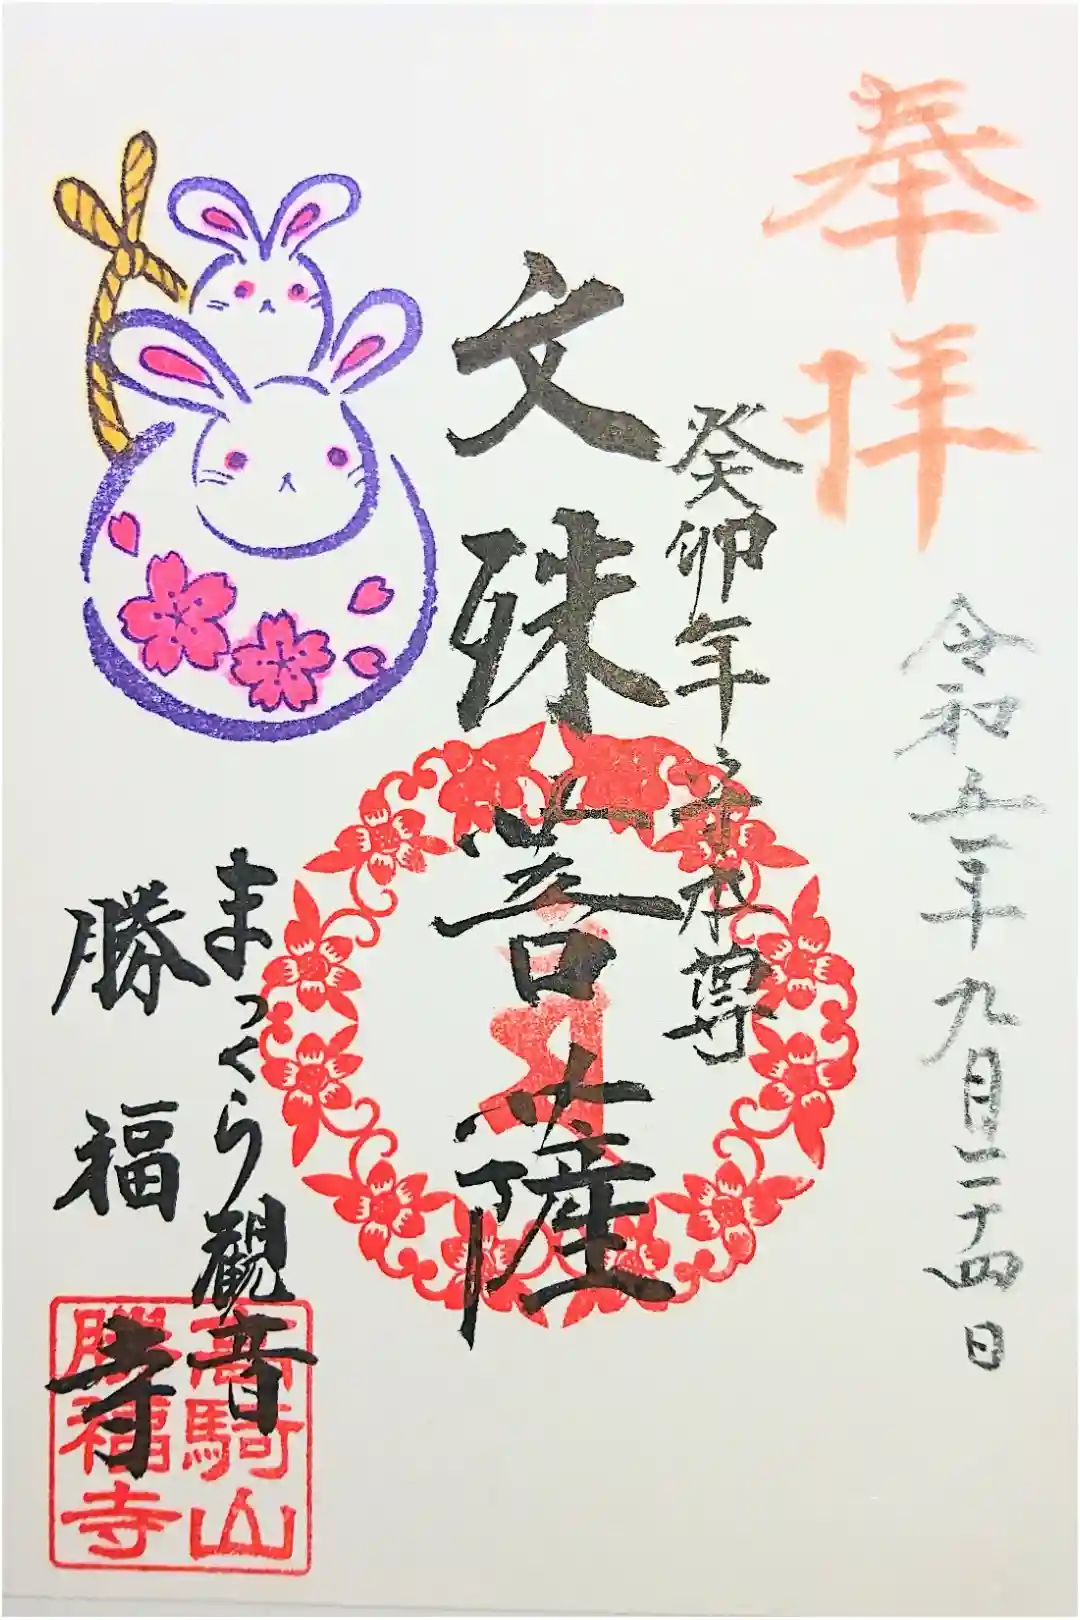 奉拝
令和五年九月二十四日
癸卯年守本尊
文殊菩薩
まっくら観音
勝福寺
高騎山
勝福寺